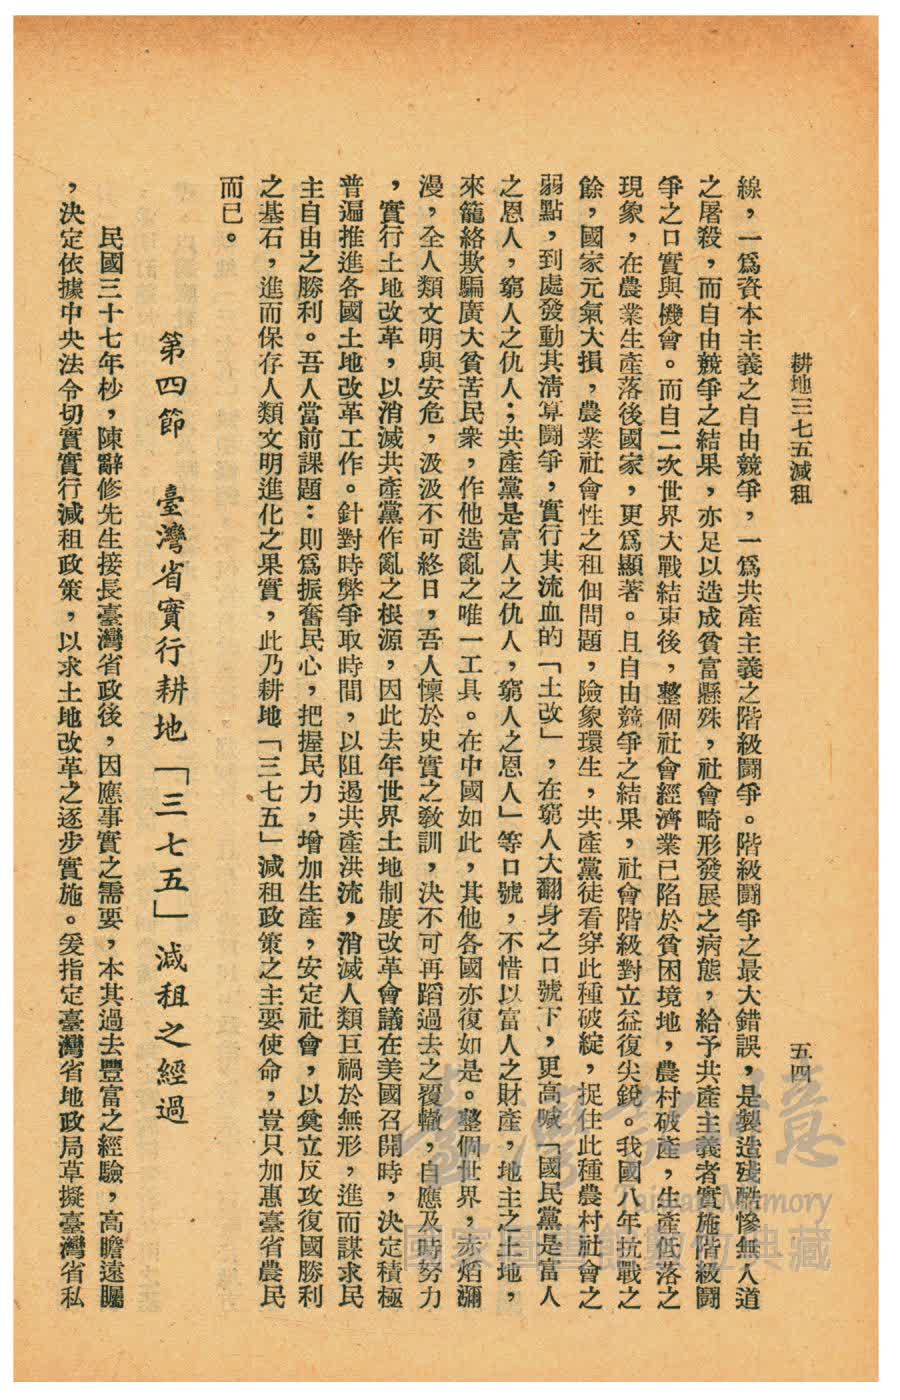 耕地三七五減租
五四
線，一爲資本主義之自由競爭，一爲共產主義之階級鬪爭。階級鬪爭之最大錯誤，是製造殘酷慘無人道
之屠殺，而自由競爭之結果，亦足以造成貧富懸殊，社會畸形發展之病態，給予共產主義者實施階級鬪
爭之口實與機會。而自二次世界大戰結束後，整個社會經濟業已陷於貧困境地，農村破產，生產低落之
現象，在農業生產落後國家，更爲顯著。且自由競爭之結果，社會階級對立益復尖銳。我國八年抗戰之
餘，國家元氣大損，農業社會性之租佃問題，險象環生，共產黨徒看穿此種破綻，捉住此種農村社會之
弱點，到處發動其清算鬪爭，實行其流血的「土改」，在窮人大翻身之口號下，更高喊「國民黨是富人
之恩人，窮人之仇人；共產黨是富人之仇人，窮人之恩人」等口號，不惜以富人之財產，地主之土地，
來籠絡欺騙廣大貧苦民衆，作他造亂之唯一工具。在中國如此，其他各國亦復如是。整個世界，赤焰瀰
漫，全人類文明與安危，汲汲不可終日，吾人懍於史實之敎訓，決不可再蹈過去之覆轍，自應及時努力
，實行土地改革，以消滅共產黨作亂之根源，因此去年世界土地制度改革會議在美國召開時，決定積極
普遍推進各國土地改革工作。針對時弊爭取時間，以阻遏共產洪流，消滅人類巨禍於無形，進而謀求民
主自由之勝利。吾人當前課題：則爲振奮民心，把握民力，增加生產，安定社會，以奠立反攻復國勝利
之基石，進而保存人類文明進化之果實，此乃耕地「三七五」減租政策之主要使命，豈只加惠臺省農民
而已。
第四節　臺灣省實行耕地「三七五」減租之經過
民國三十七年杪，陳辭修先生接長臺灣省政後，因應事實之需要，本其過去豐富之經驗，高瞻遠矚
，決定依據中央法令切實實行減租政策，以求土地改革之逐步實施。爰指定臺灣省地政局草擬臺灣省私
臺灣記憶
Taiwan Memory
國家圖書館數位典藏